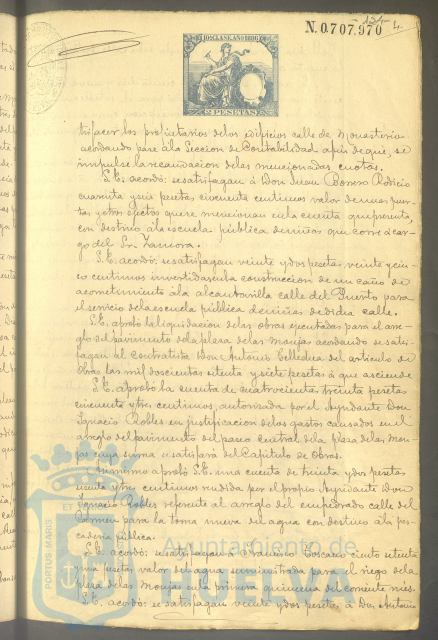 N.0.707.970
10ª CLASE. AÑO 1886
2 PESETAS
tisfacer los propietarios de los edificios calle de Monasterio
acordando pase á la Seccion de Contabilidad á fin de que, se
impulse la recaudacion de las mencionadas cuotas.
S.E. acordó: se satisfagan á Don Juan Bonero
cuarenta y seis pesetas cincuenta centimos valor de unas puer-
tas y otros efectos que se mencionan en la cuenta que presenta
con destino á la escuela pública de niñas que corre á car-
go del Sr. Zamora.
S.E. acordó: se satisfagan veinte y dos pesetas veinte y cin-
co centimos invertidas en la construccion de un caño de
acometimiento á la alcantarilla calle del Puerto para
el servicio de la escuela pública de niñas de dicha calle.
S.E. aprobó la liquidacion de las obras ejecutadas para el arre-
glo del pavimento de la plaza de las Monjas acordando se satis-
fagan al contratista Don Antonio del articulo de
Obras las mil doscientas setenta y siete pesetas á que asciende
S.E. aprobó la cuenta de cuatrocientas treinta pesetas
cincuenta y tres centimos, autorizada por el Ayudante Don
Ignacio Robles en justificacion de los gastos causados en el
arreglo del pavimento del paseo central de la Plaza de las Mon-
jas cuya suma se satisfará del Capitulo de Obras.
Asimismo aprobó S.E. una cuenta de treinta y dos pesetas
y tres centimos rendida por el propio Ayudante Don
Ignacio Robles referente al arreglo del empedrado calle del
para la toma nueva del agua con destino á la pes-
caderia pública.
S.E. acordó: se satisfagan á Francisco Toscano ciento setenta
y una pesetas valor del agua suministrada para el riego de la
plaza de las Monjas en la primera quincena del corriente mes.
S.E. acordó: se satisfagan veinte y dos pesetas á Don Antonio
Ayuntamiento de
HUELVA
PORTUS MARIS
ET